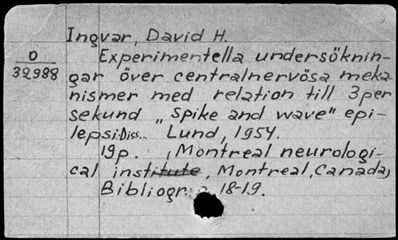 Ingvar, David H.
O
32988
Experimentella undersöknin-
gar över centralnervösa meka
nismer med relation till 3per
sekund „spike and wave" epi-
lepsi. Diss.. Lund, 1954.
19p. (Montreal neurologi-
cal institute, Montreal, Canada)
Bibliogr. p. 18-19.